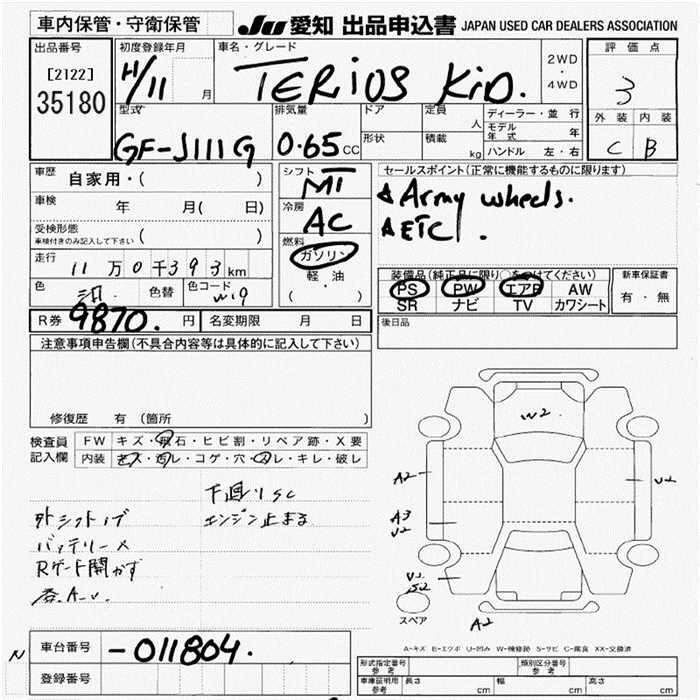 車内保管・守衛保管
JU 愛知 出品申込書 JAPAN USED CAR DEALERS ASSOCIATION
出品番号
[2122]
35180
初度登録年月
H/11 月
車名・グレード
TERIOS KID.
2WD
・
4WD
評価点
3
外装 内装
C B
型式
GF-J111G
排気量
0.65 CC
ドア
形状
定員
人
積載
kg
ディーラー・並行
モデル年式 年
ハンドル 左・右
車歴
自家用・( )
車検
年 月( 日)
受検形態
車検付きのみ記入して下さい ( )
走行
11万0千393km
色
色替
色コード
W19
R券 9870. 円
名変期限 月 日
シフト
MT
冷房
AC
燃料
ガソリン
軽・油
( )
セールスポイント(正常に機能するものに限ります)
Army wheels.
ETC.
装備品(純正品に限り○をつけてください)
PS PW エアB AW
SR ナビ TV カワシート
新車保証書
有・無
後日品
注意事項申告欄(不具合内容等は具体的に記入して下さい)
修復歴 有(箇所 )
検査員
記入欄
FW キズ・飛石・ヒビ割・リペア跡・X要
内装 キズ・汚レ・コゲ・穴・スレ・キレ・破レ
下廻りSC
エンジン止まる
外シフトノブ
バッテリーX
Rゲート開かず
W2
A2
U2
A3
U2
U2
S2
A2
スペア
A-キズ E-エクボ U-凹み W-補修跡 S-サビ C-腐食 XX-交換済
N
車台番号 -011804.
登録番号
形式指定番号
参考
類別区分番号
参考
車庫証明用
参考
長さ cm 幅 cm 高さ cm